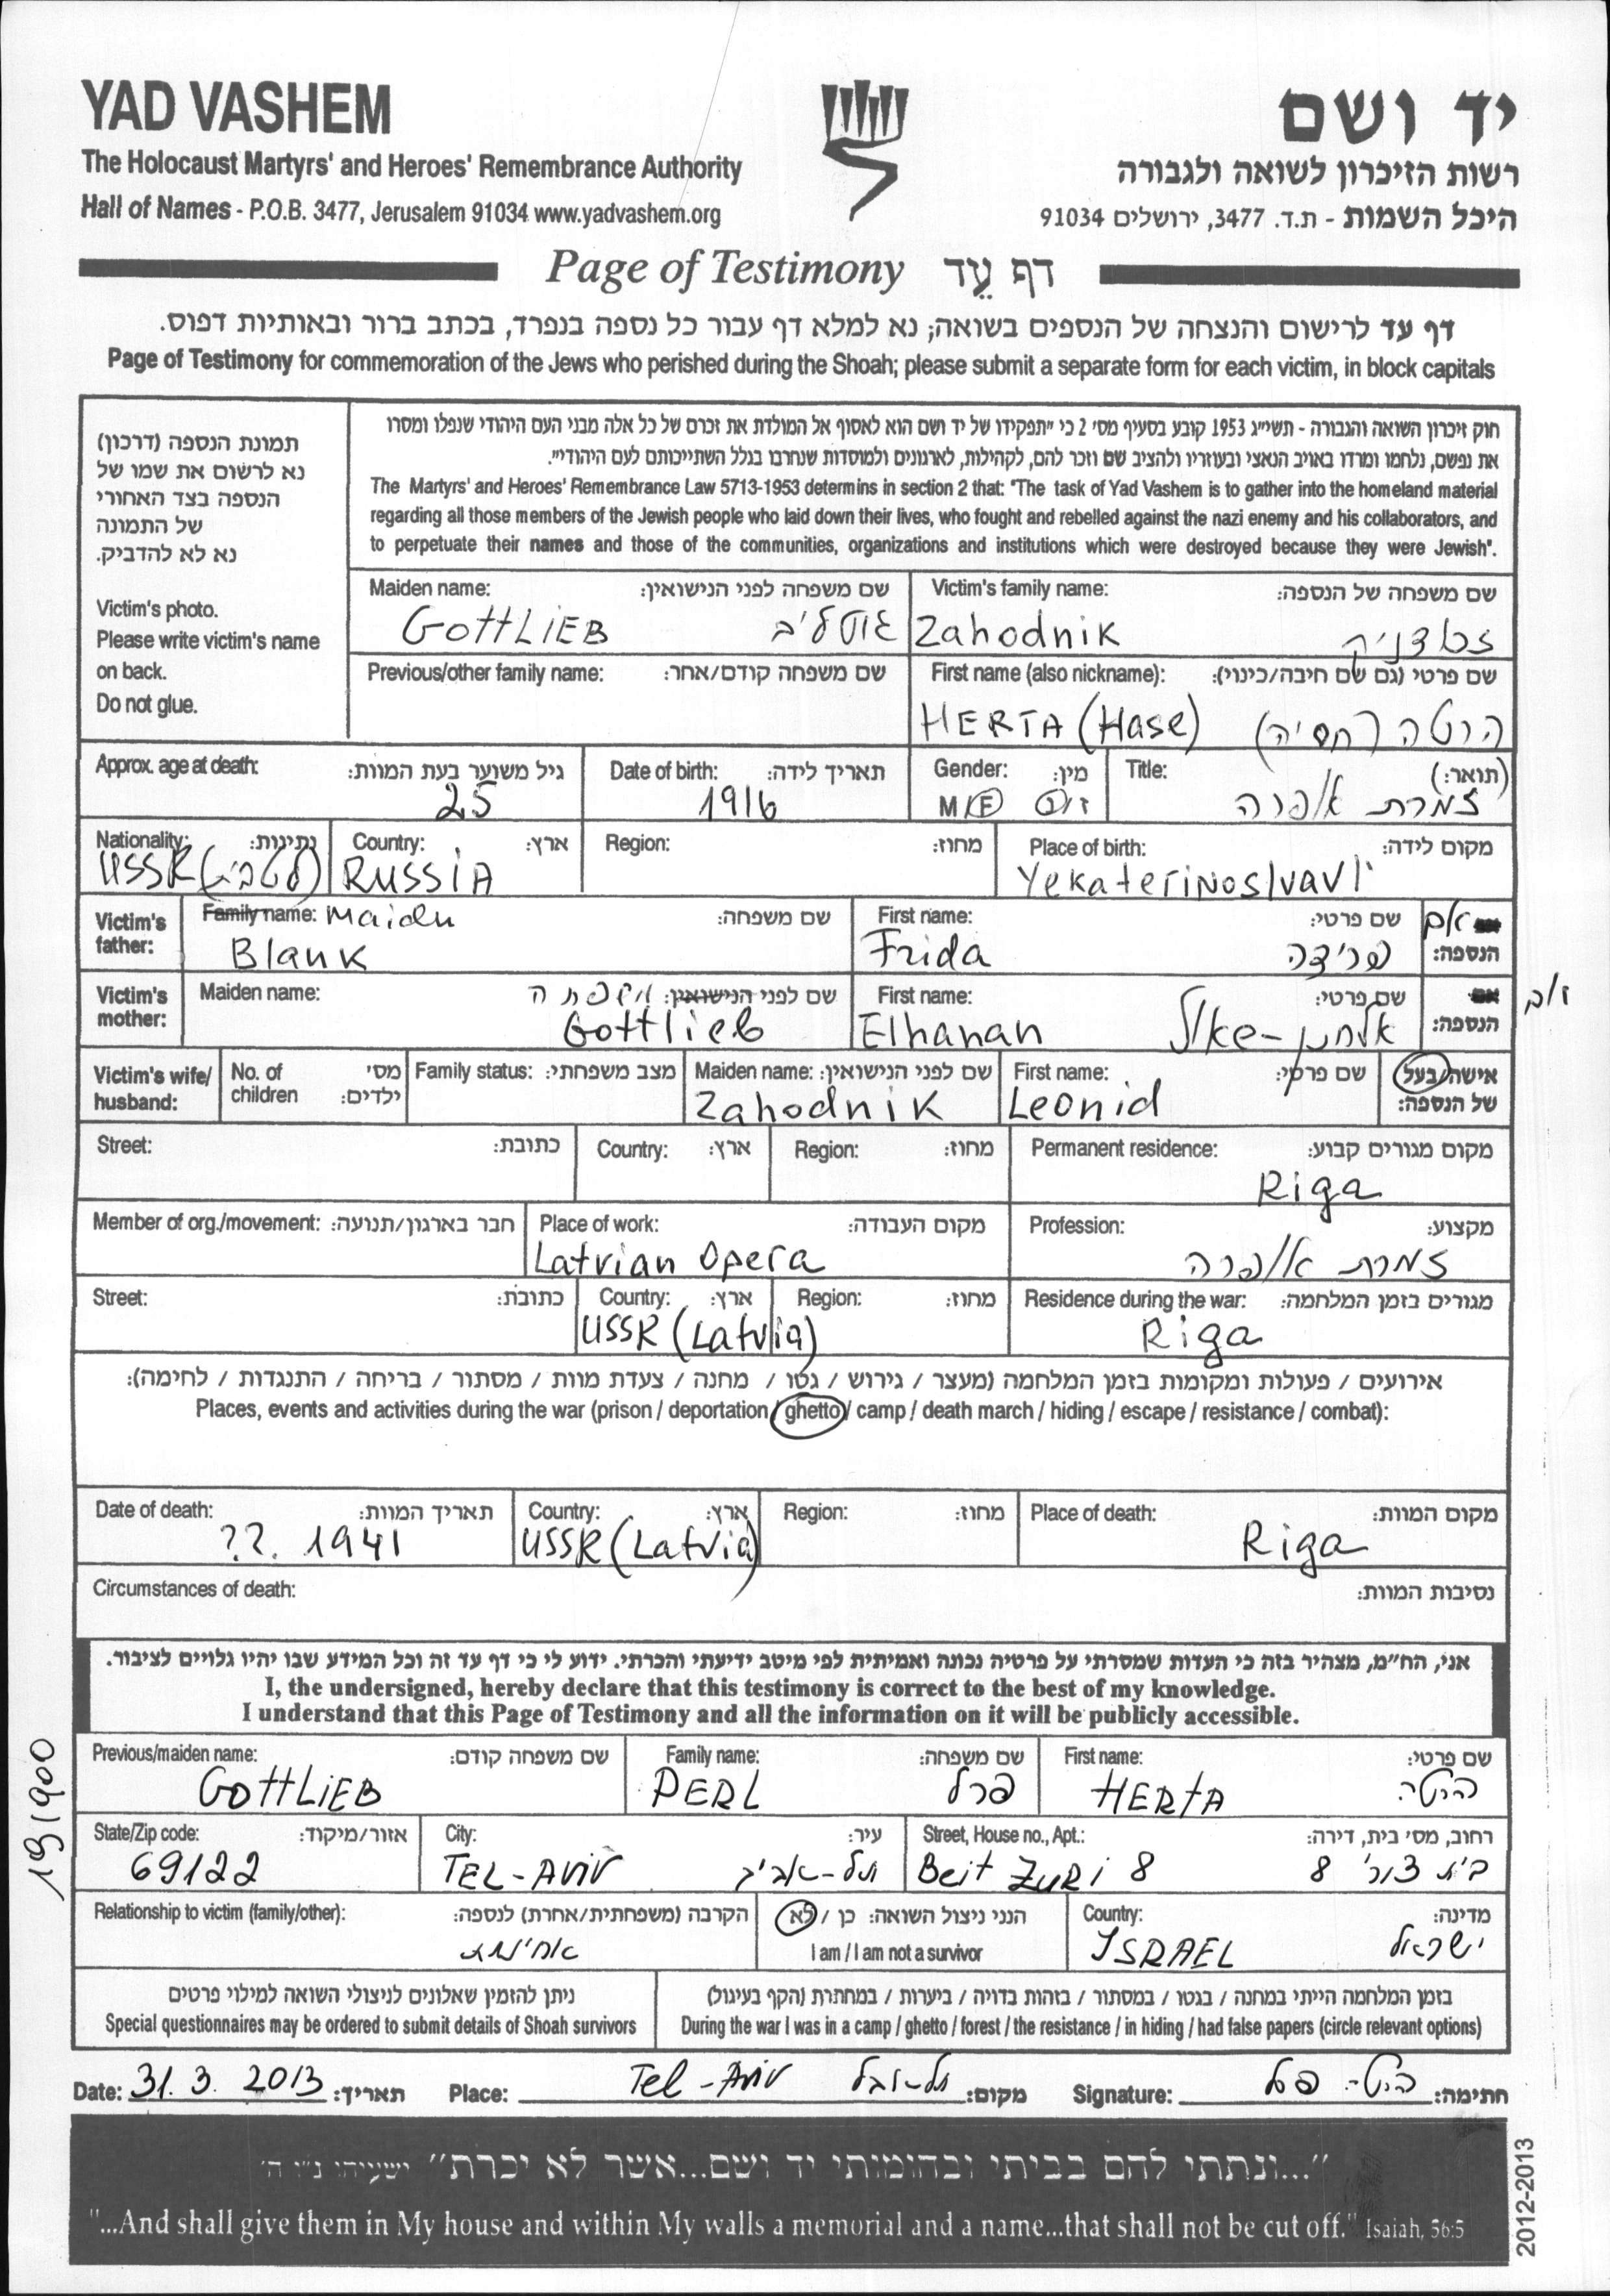 YAD VASHEM
The Holocaust Martyrs' and Heroes' Remembrance Authority
Hall of Names - P.O.B. 3477, Jerusalem 91034 www.yadvashem.org
יד ושם
רשות הזיכרון לשואה ולגבורה
היכל השמות - ת.ד. 3477, ירושלים 91034
Page of Testimony דף עֵד
דף עד לרישום והנצחה של הנספים בשואה; נא למלא דף עבור כל נספה בנפרד, בכתב ברור ובאותיות דפוס.
Page of Testimony for commemoration of the Jews who perished during the Shoah; please submit a separate form for each victim, in block capitals
תמונת הנספה (דרכון)
נא לרשום את שמו של
הנספה בצד האחורי
של התמונה
נא לא להדביק.
Victim's photo.
Please write victim's name
on back.
Do not glue.
חוק זיכרון השואה והגבורה - תשי״ג 1953 קובע בסעיף מס׳ 2 כי ״תפקידו של יד ושם הוא לאסוף אל המולדת את זכרם של כל אלה מבני העם היהודי שנפלו ומסרו
את נפשם, נלחמו ומרדו באויב הנאצי ובעוזריו ולהציב שם וזכר להם, לקהילות, לארגונים ולמוסדות שנחרבו בגלל השתייכותם לעם היהודי״.
The Martyrs' and Heroes' Remembrance Law 5713-1953 determins in section 2 that: "The task of Yad Vashem is to gather into the homeland material
regarding all those members of the Jewish people who laid down their lives, who fought and rebelled against the nazi enemy and his collaborators, and
to perpetuate their names and those of the communities, organizations and institutions which were destroyed because they were Jewish".
Maiden name: שם משפחה לפני הנישואין:
GottLiEB גוטליב
Victim's family name: שם משפחה של הנספה:
Zahodnik
Previous/other family name: שם משפחה קודם/אחר:
First name (also nickname): שם פרטי (גם שם חיבה/כינוי):
HERTA (Hase) הרטה (חסיה)
Approx. age at death: גיל משוער בעת המוות:
25
Date of birth: תאריך לידה:
1916
Gender: מין:
M/F ז/נ
Title: (תואר:)
זמרת אופרה
Nationality: נתינות:
USSR (לטביה)
Country: ארץ:
RUSSiA
Region: מחוז:
Place of birth: מקום לידה:
Yekaterinoslvavl
Victim's father:
Family name: Maiden שם משפחה:
Blank
First name: שם פרטי:
Frida פרידה
אם הנספה:
Victim's mother:
Maiden name: שם לפני הנישואין: משפחה
Gottlieb
First name: שם פרטי:
Elhanan
הנספה:
Victim's wife/ husband:
No. of children מס׳ ילדים:
Family status: מצב משפחתי:
Maiden name: שם לפני הנישואין:
Zahodnik
First name: שם פרטי:
Leonid
אישה/בעל של הנספה:
Street: כתובת:
Country: ארץ:
Region: מחוז:
Permanent residence: מקום מגורים קבוע:
Riga
Member of org./movement: חבר בארגון/תנועה:
Place of work: מקום העבודה:
Latvian Opera
Profession: מקצוע:
זמרת אופרה
Street: כתובת:
Country: ארץ:
USSR (Latvia)
Region: מחוז:
Residence during the war: מגורים בזמן המלחמה:
Riga
אירועים / פעולות ומקומות בזמן המלחמה (מעצר / גירוש / גטו / מחנה / צעדת מוות / מסתור / בריחה / התנגדות / לחימה):
Places, events and activities during the war (prison / deportation / ghetto / camp / death march / hiding / escape / resistance / combat):
Date of death: תאריך המוות:
??. 1941
Country: ארץ:
USSR (Latvia)
Region: מחוז:
Place of death: מקום המוות:
Riga
Circumstances of death: נסיבות המוות:
אני, הח״מ, מצהיר בזה כי העדות שמסרתי על פרטיה נכונה ואמיתית לפי מיטב ידיעתי והכרתי. ידוע לי כי דף עד זה וכל המידע שבו יהיו גלויים לציבור.
I, the undersigned, hereby declare that this testimony is correct to the best of my knowledge.
I understand that this Page of Testimony and all the information on it will be publicly accessible.
Previous/maiden name: שם משפחה קודם:
GottLiEB
Family name: שם משפחה:
PERL פרל
First name: שם פרטי:
HERtA הרטה
State/Zip code: אזור/מיקוד:
69122
City: עיר:
TEL-AViV תל-אביב
Street, House no., Apt.: רחוב, מס׳ בית, דירה:
Beit Zuri 8 בית צורי 8
Relationship to victim (family/other): הקרבה (משפחתית/אחרת) לנספה:
אחינית
הנני ניצול השואה: כן / לא
I am / I am not a survivor
Country: מדינה:
ISRAEL ישראל
ניתן להזמין שאלונים לניצולי השואה למילוי פרטים
Special questionnaires may be ordered to submit details of Shoah survivors
בזמן המלחמה הייתי במחנה / בגטו / במסתור / בזהות בדויה / ביערות / במחתרת (הקף בעיגול)
During the war I was in a camp / ghetto / forest / the resistance / in hiding / had false papers (circle relevant options)
Date: 31.3.2013 תאריך: Place: Tel-Aviv תל-אביב מקום: Signature: הרטה פרל חתימה:
״...ונתתי להם בביתי ובחומותי יד ושם...אשר לא יכרת״ ישעיהו נ״ו ה׳
"...And shall give them in My house and within My walls a memorial and a name...that shall not be cut off." Isaiah, 56:5
191900
2012-2013